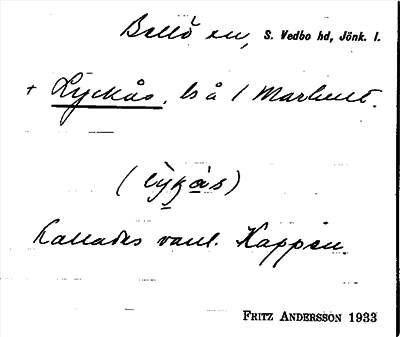 Bellö sn, S. Vedbo hd, Jönk. l.
+ Lyckås, ls å 1 Markut.
(lỳkås)
kallades vanl. Kappen.
FRITZ ANDERSSON 1933